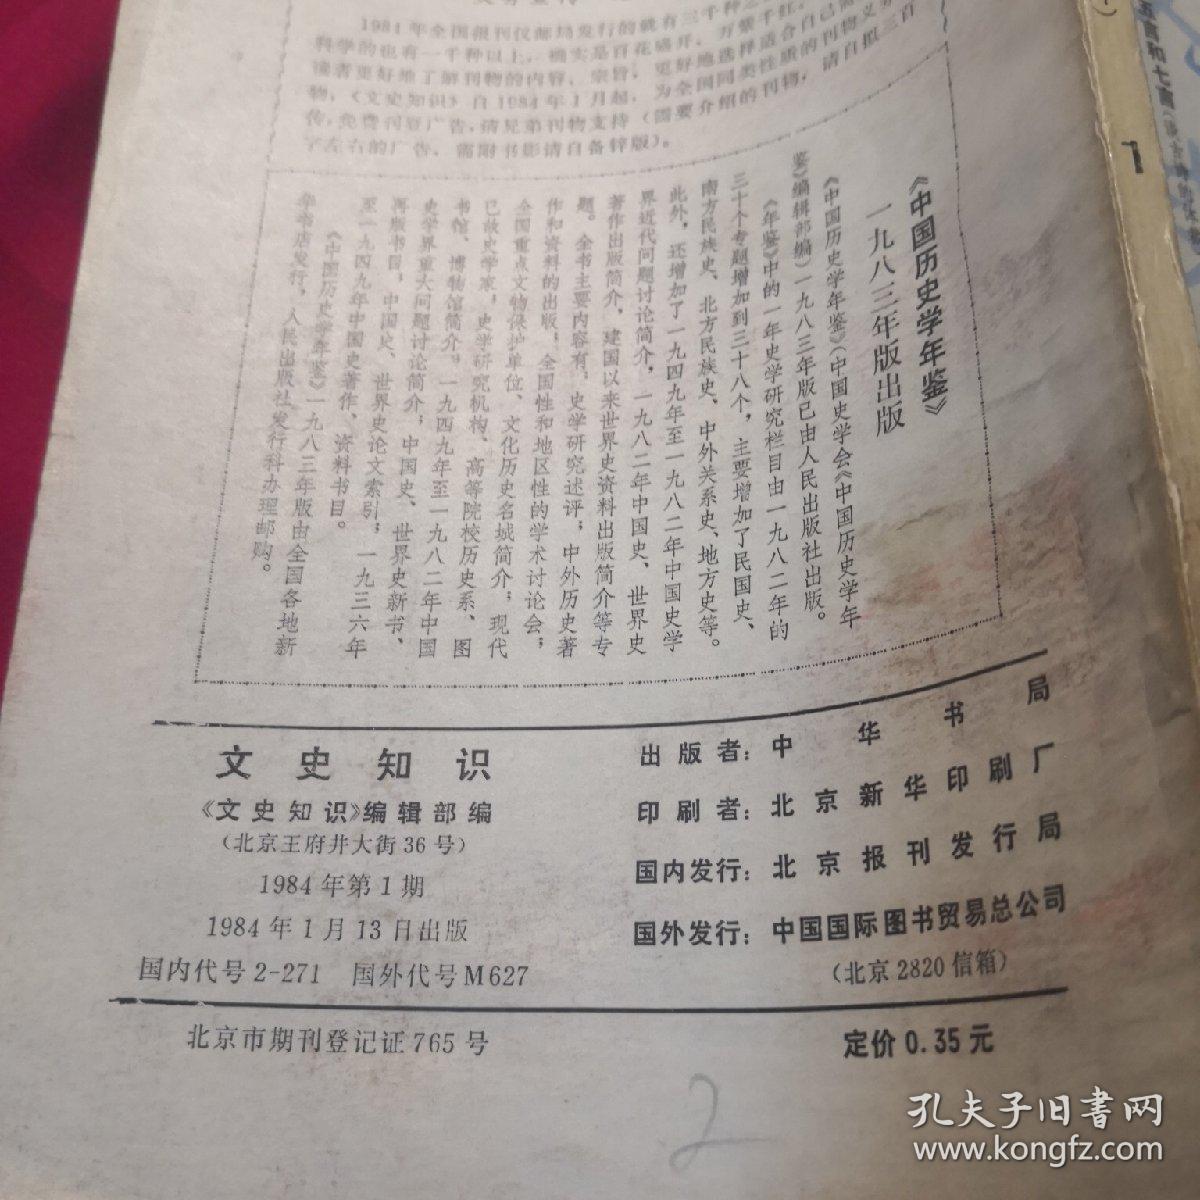 1984年全国报刊仅邮局发行的就有三千种之
科学的也有一千种以上，确实是百花盛开，万紫千红。
读者更好地了解刊物的内容、宗旨，更好地选择适合自己需
物，《文史知识》自1984年1月起，为全国同类性质的刊物义务
传，免费刊登广告，请兄弟刊物支持（需要介绍的刊物，请自拟三百
字左右的广告，需附书影请自备锌版）。
《中国历史学年鉴》
一九八三年版出版
《中国历史学年鉴》（中国史学会《中国历史学年
鉴》编辑部编）一九八三年版已由人民出版社出版。
《年鉴》中的一年史学研究栏目由一九八二年的
三十个专题增加到三十八个，主要增加了民国史、
南方民族史、北方民族史、中外关系史、地方史等。
此外，还增加了一九四九年至一九八二年中国史学
界近代问题讨论简介，一九八二年中国史、世界史
著作出版简介，建国以来世界史资料出版简介等专
题。全书主要内容有，史学研究述评；中外历史著
作和资料的出版；全国性和地区性的学术讨论会；
全国重点文物保护单位、文化历史名城简介；现代
已故史学家，史学研究机构、高等院校历史系、图
书馆、博物馆简介。一九四九年至一九八二年中国
史学界重大问题讨论简介；中国史、世界史新书、
再版书目，中国史、世界史论文索引；一九三六年
至一九四九年中国史著作、资料书目。
《中国历史学年鉴》一九八三年版由全国各地新
华书店发行，人民出版社发行科办理邮购。
文史知识
《文史知识》编辑部编
（北京王府井大街36号）
1984年第1期
1984年1月13日出版
国内代号2-271 国外代号M627
出版者：中华书局
印刷者：北京新华印刷厂
国内发行：北京报刊发行局
国外发行：中国国际图书贸易总公司
（北京2820信箱）
北京市期刊登记证765号
定价0.35元
2
五言和七言
孔夫子旧书网
www.kongfz.com